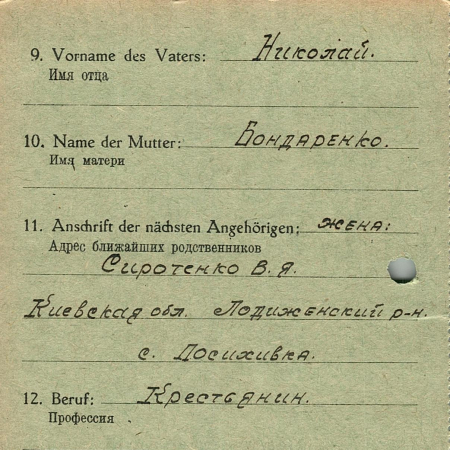 9. Vorname des Vaters: Николай.
Имя отца
10. Name der Mutter: Бондаренко.
Имя матери
11. Anschrift der nächsten Angehörigen: жена:
Адрес ближайших родственников
Сиротенко В. Я.
Киевская обл. Лодиженский р-н.
с. Посиживка.
12. Beruf: Крестьянин.
Профессия